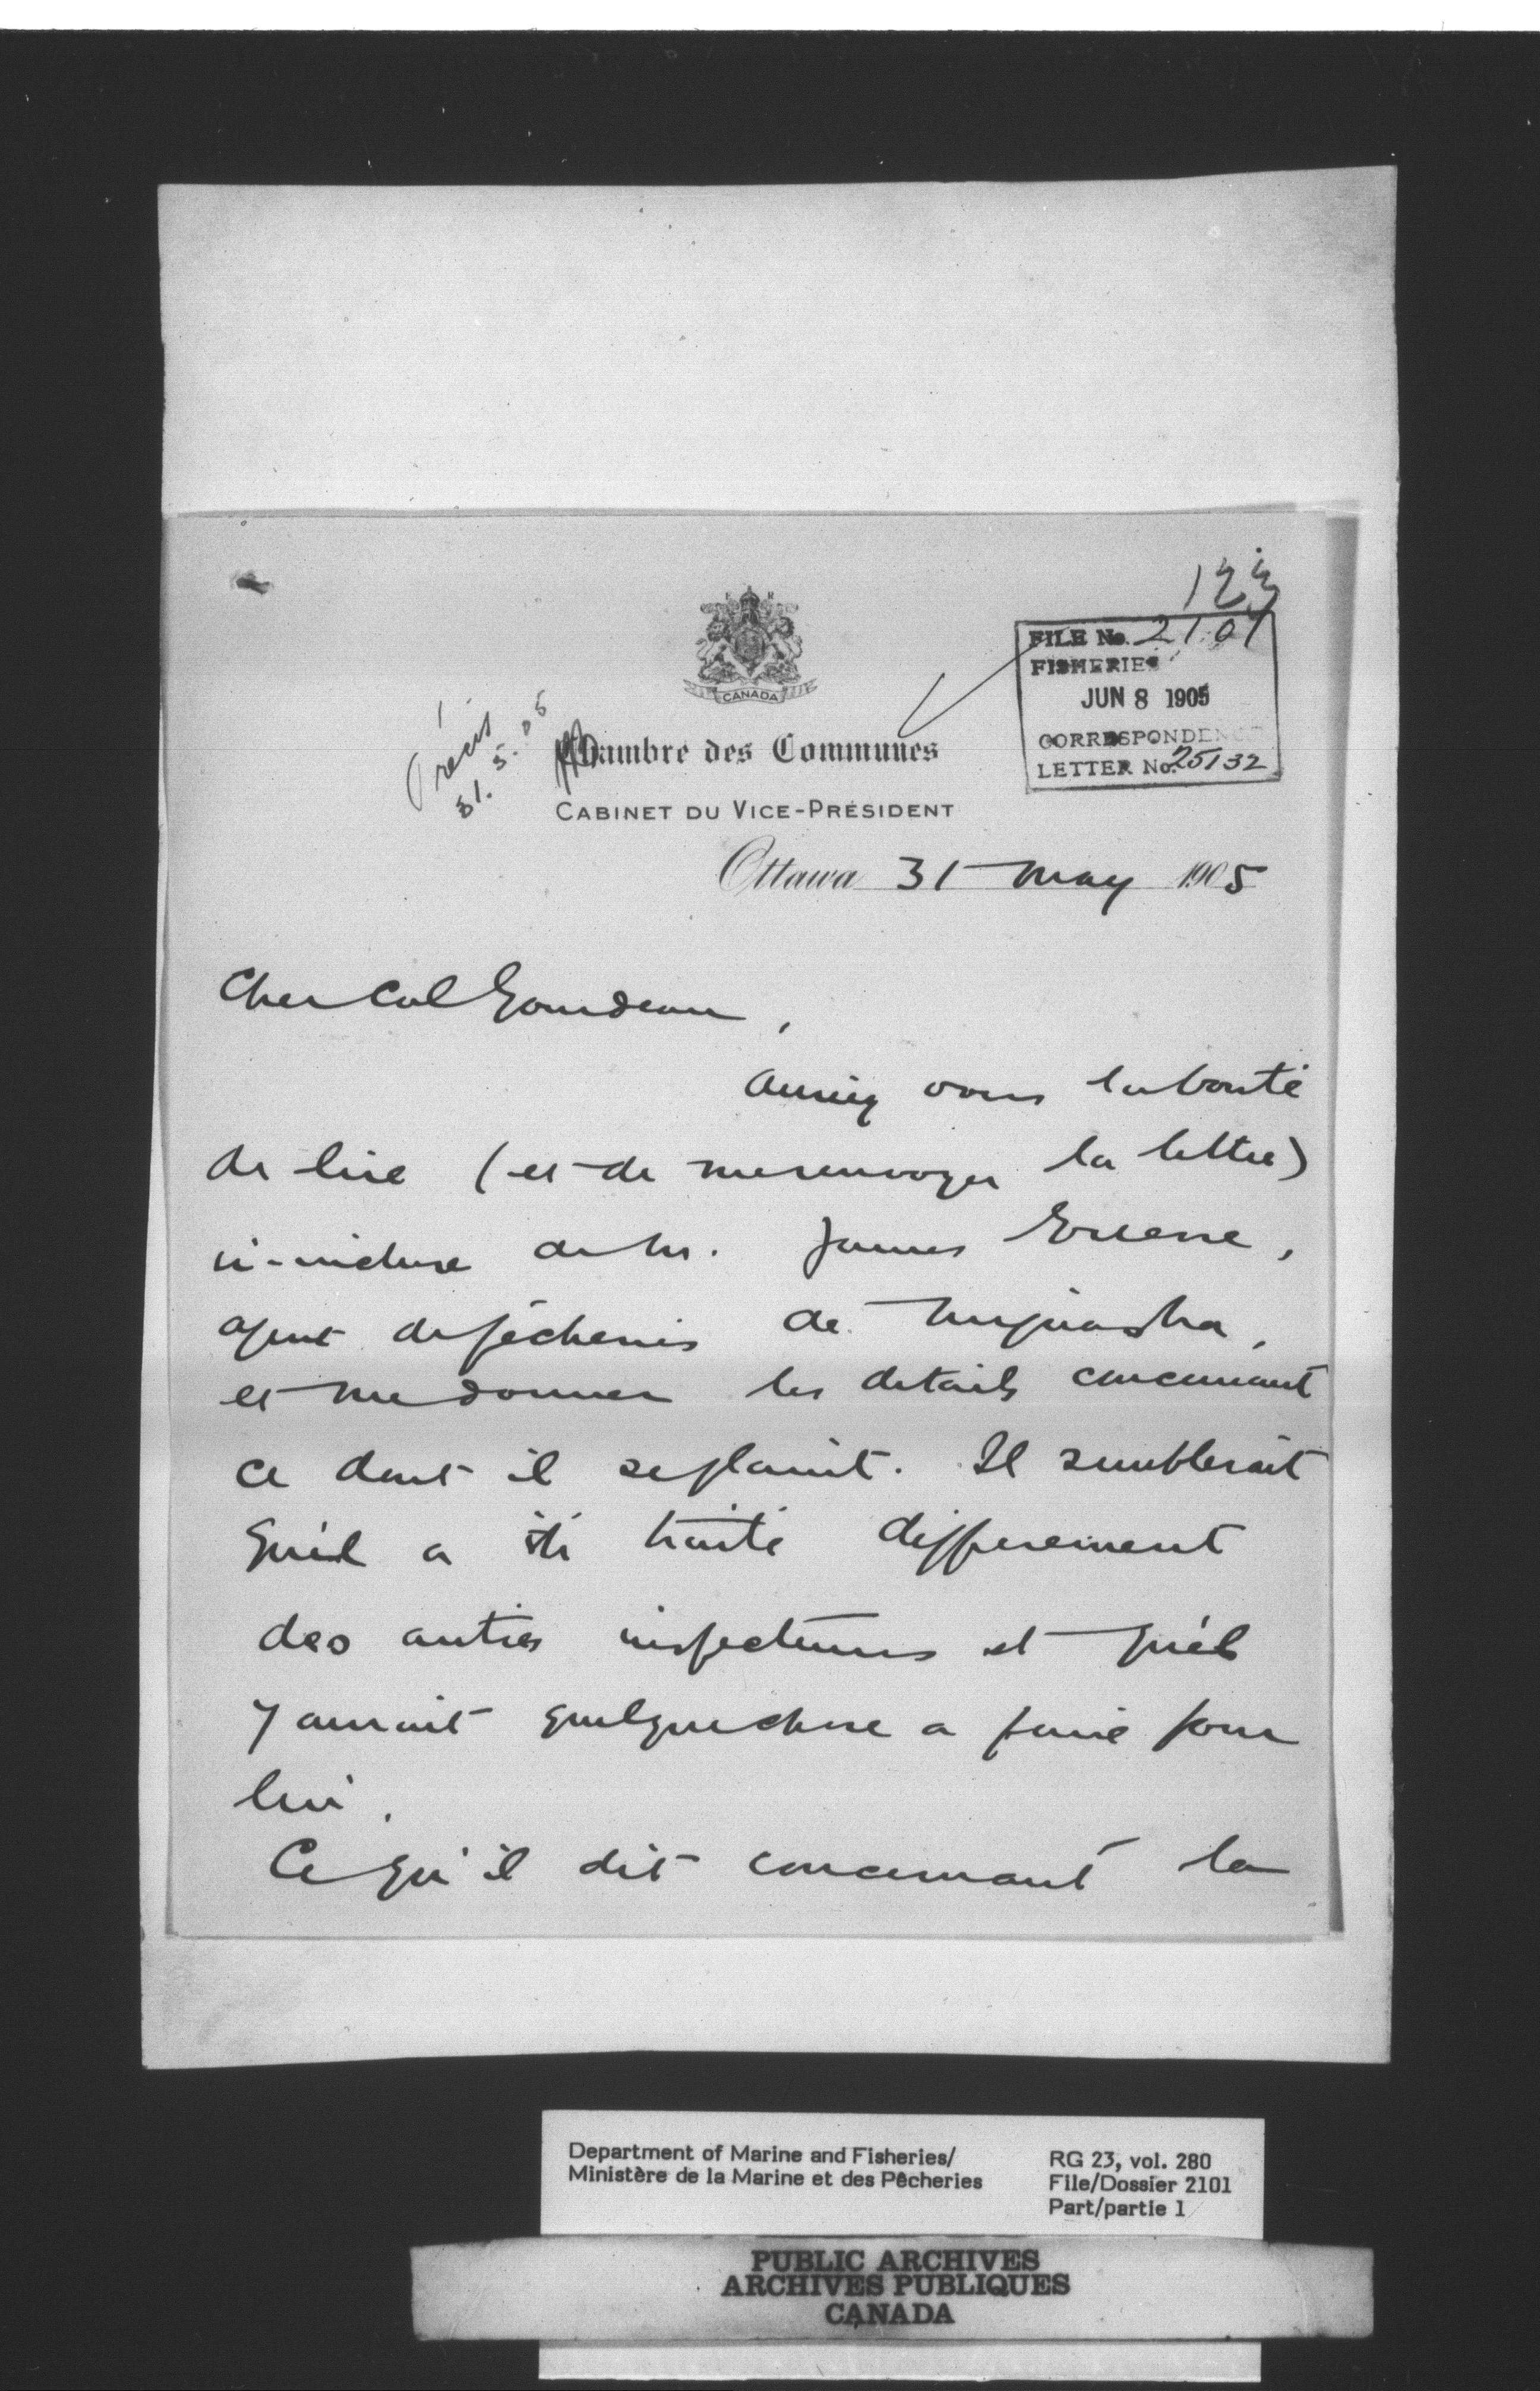 123
FILE No. 2101
FISHERIES
JUN 8 1905
CORRESPONDENCE
LETTER No. 25132
E R
CANADA
Précis
31.5.05
Chambre des Communes
CABINET DU VICE-PRÉSIDENT
Ottawa 31 May 1905
Cher Col Gourdeau,
Auriez vous la bonté
de lire (et de me renvoyer la lettre)
ci-incluse de Mr. James
agent de pêcheries de Miguasha,
et me donner les details concernant
ce dont il se plaint. Il semblerait
qu'il a été traité differement
des autres inspecteurs et qu'il
y aurait quelque chose a faire pour
lui.
Ce qu'il dit concernant la
Department of Marine and Fisheries/
Ministère de la Marine et des Pêcheries
RG 23, vol. 280
File/Dossier 2101
Part/partie 1
PUBLIC ARCHIVES
ARCHIVES PUBLIQUES
CANADA